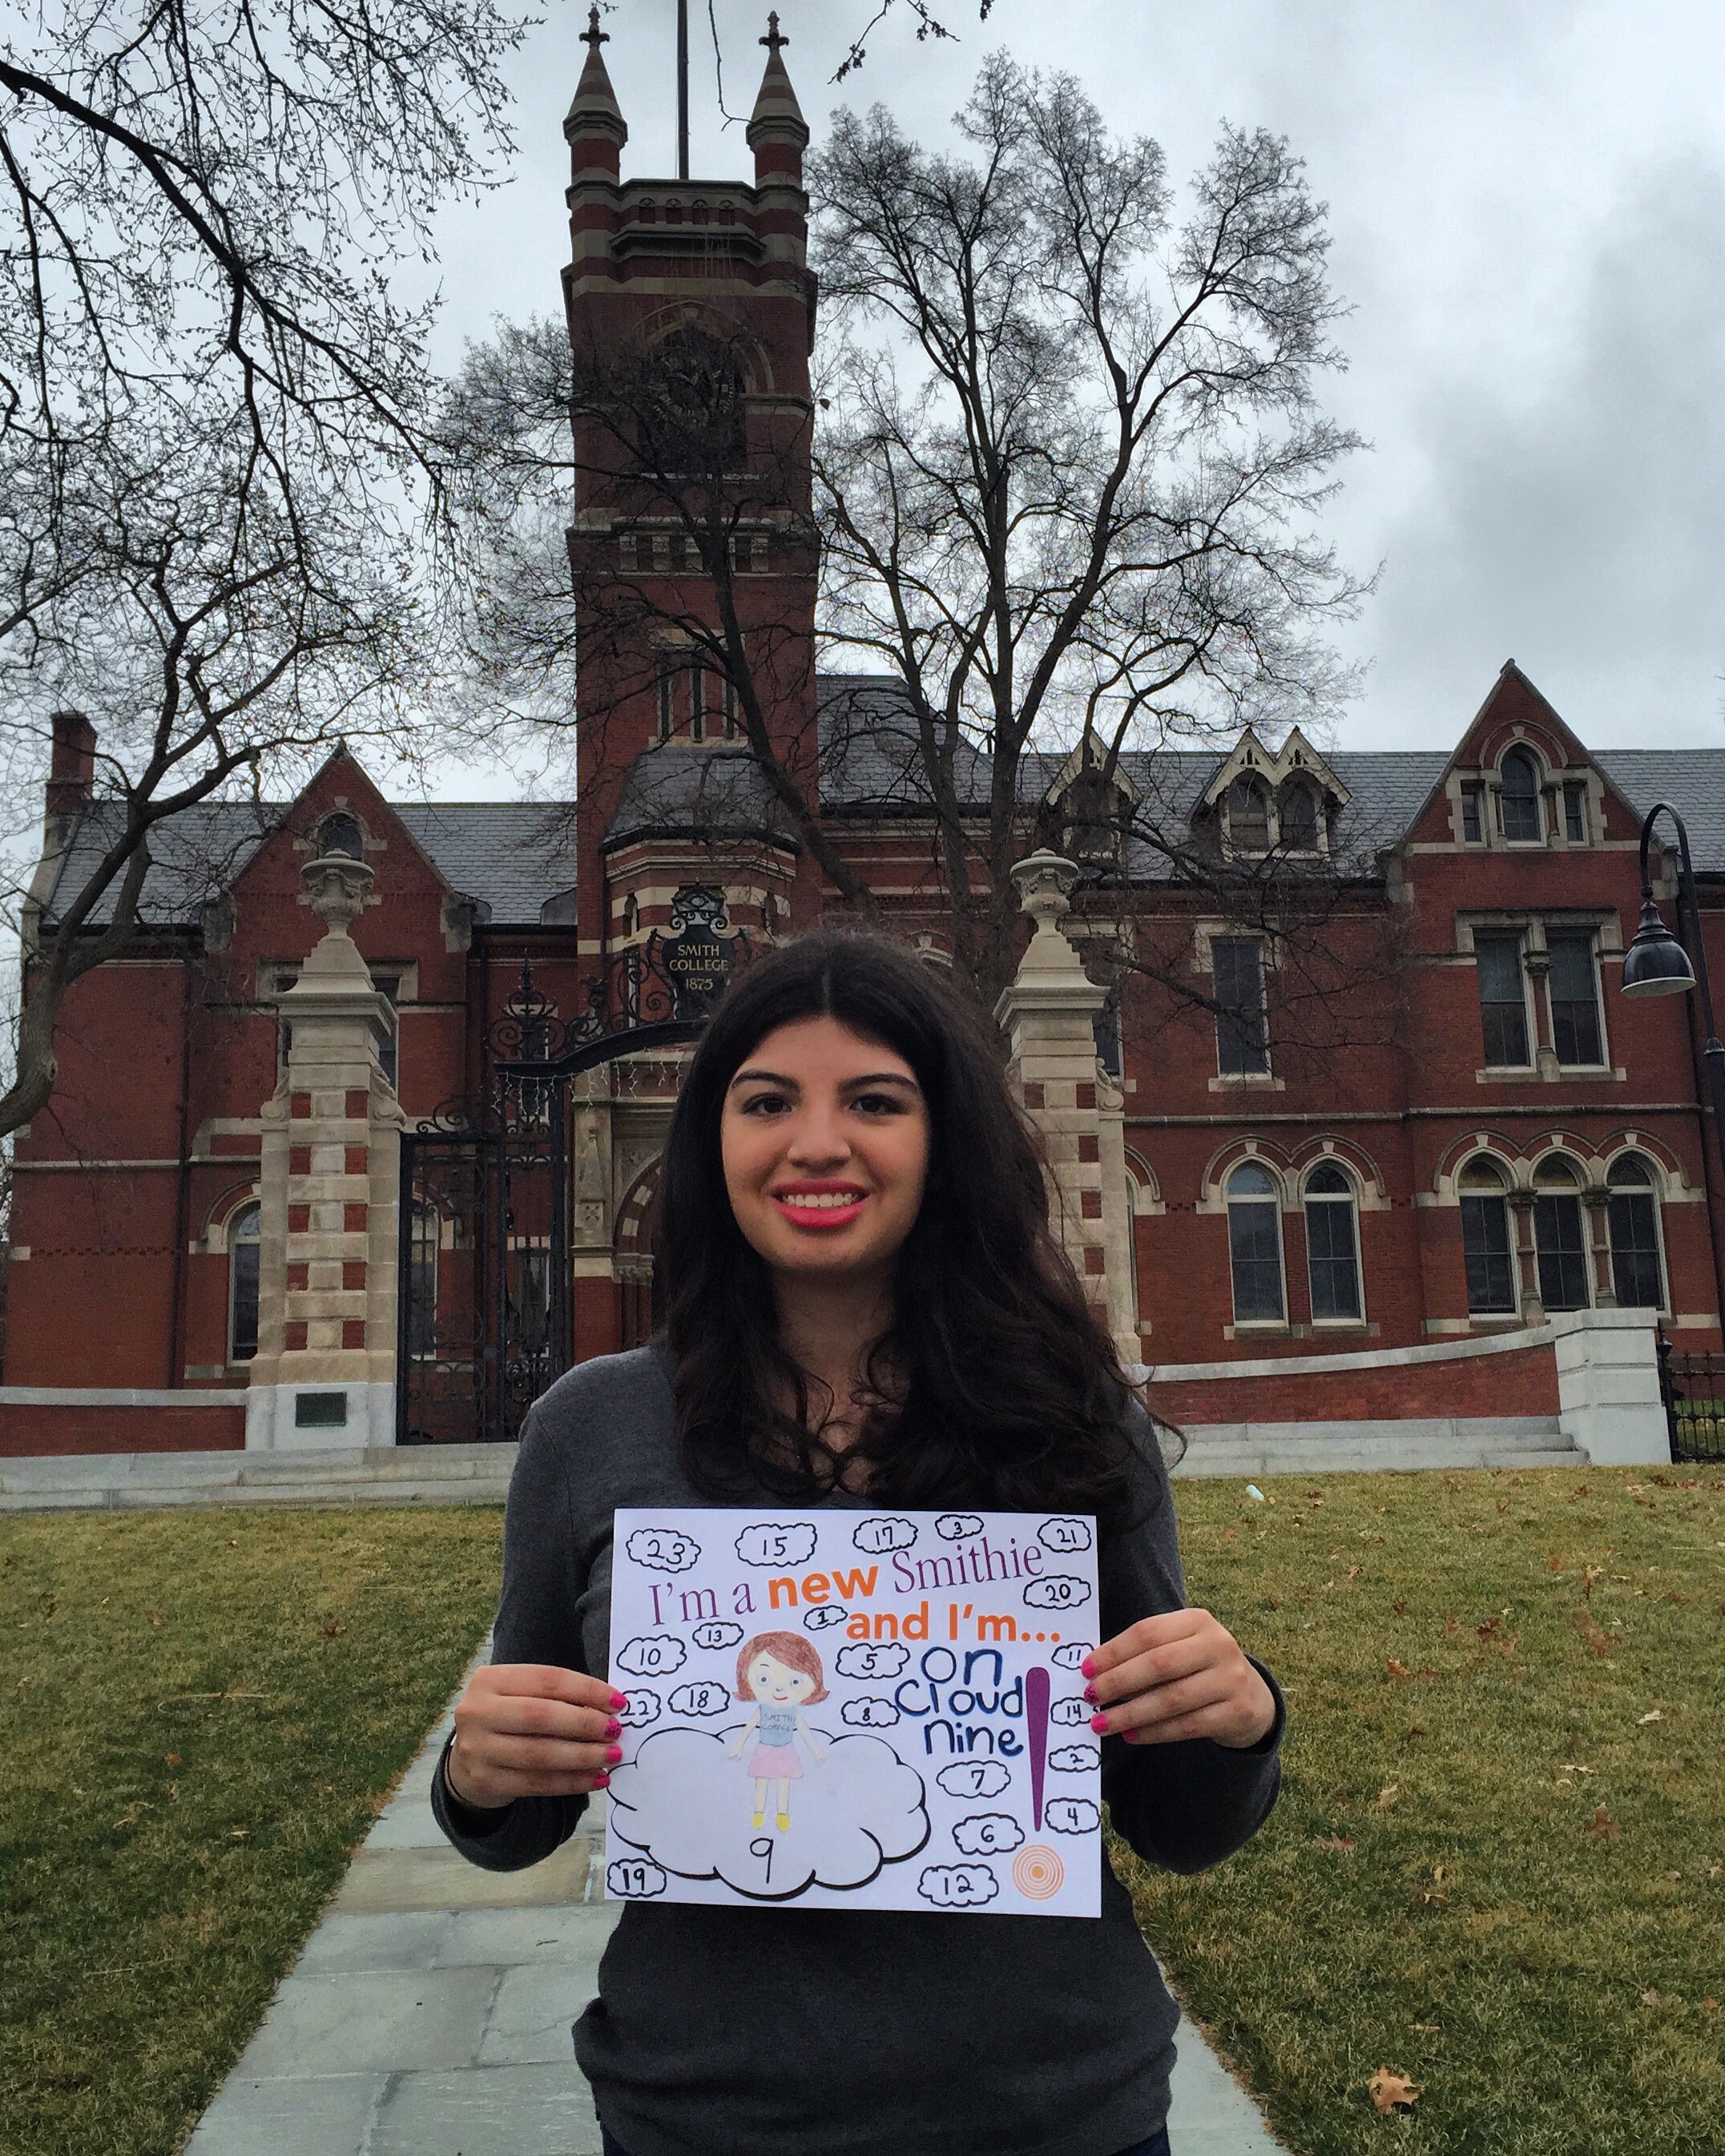 SMITH
COLLEGE
1875
23
15
17
3
21
I'm a new Smithie
20
1
and I'm...
13
10
5
on
11
22
18
8
Cloud
14
SMITH
COLLEGE
nine
2
7
4
6
9
19
12